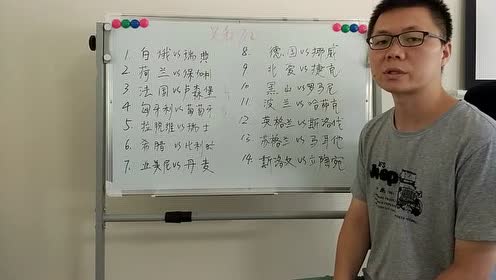 1. 白俄vs瑞典
2. 荷兰vs保加利
3. 法国vs卢森堡
4. 匈牙利vs葡萄牙
5. 拉脱维vs瑞士
6. 希腊vs比利时
7. 亚美尼vs丹麦
8. 德国vs挪威
9. 北安vs捷克
10 黑山vs罗马尼
11 波兰vs哈萨克
12 英格兰vs斯洛伐
13 苏格兰vs马耳他
14. 斯洛文vs立陶宛